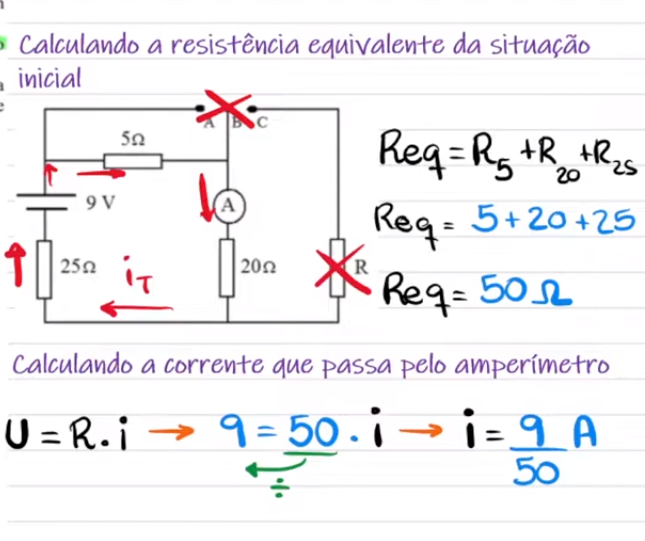 Calculando a resistência equivalente da situação
inicial
A B C
5Ω
Req = R5 + R20 + R25
9 V
A
Req = 5 + 20 + 25
25Ω
iT
20Ω
R
Req = 50 Ω
Calculando a corrente que passa pelo amperímetro
U = R . i → 9 = 50 . i → i = 9/50 A
÷